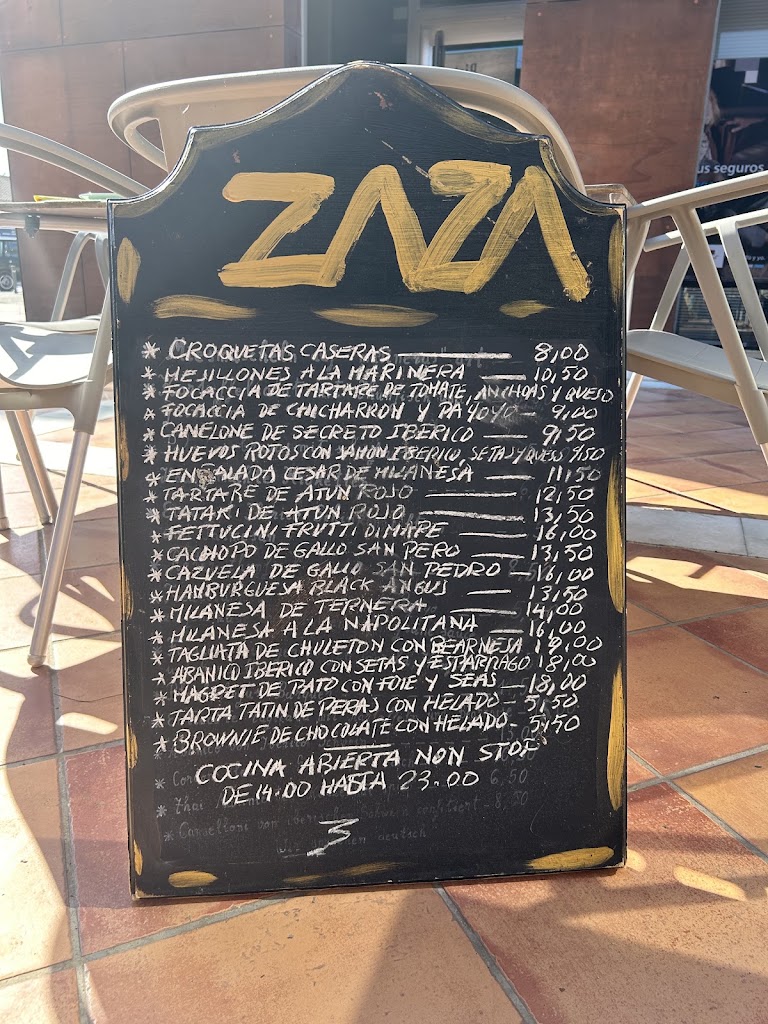 ZAZA
* CROQUETAS CASERAS — 8,00
* MEJILLONES A LA MARINERA — 10,50
* FOCACCIA DE TARTARE DE TOMATE, ANCHOAS Y QUESO
* FOCACCIA DE CHICHARRON Y PAYOYO - 9,00
* CANELONE DE SECRETO IBERICO — 9,50
* HUEVOS ROTOS CON JAMON IBERICO, SETAS Y QUESO 9,50
* ENSALADA CESAR DE MILANESA — 11,50
* TARTARE DE ATUN ROJO — 12,50
* TATAKI DE ATUN ROJO — 13,50
* FETTUCINI FRUTTI DI MARE — 16,00
* CACHOPO DE GALLO SAN PERO — 13,50
* CAZUELA DE GALLO SAN PEDRO — 16,00
* HAMBURGUESA BLACK ANGUS — 13,50
* MILANESA DE TERNERA — 14,00
* MILANESA A LA NAPOLITANA — 16,00
* TAGLIATA DE CHULETON CON BEARNESA
* ABANICO IBERICO CON SETAS Y ESTARRAGO 18,00
* MAGRET DE PATO CON FOIE Y SETAS — 18,00
* TARTA TATIN DE PERAS CON HELADO - 5,50
* BROWNIE DE CHOCOLATE CON HELADO - 5,50
COCINA ABIERTA NON STOP
DE 14.00 HASTA 23.00
6,50
* Thai
8,50
deutsch
us seguros